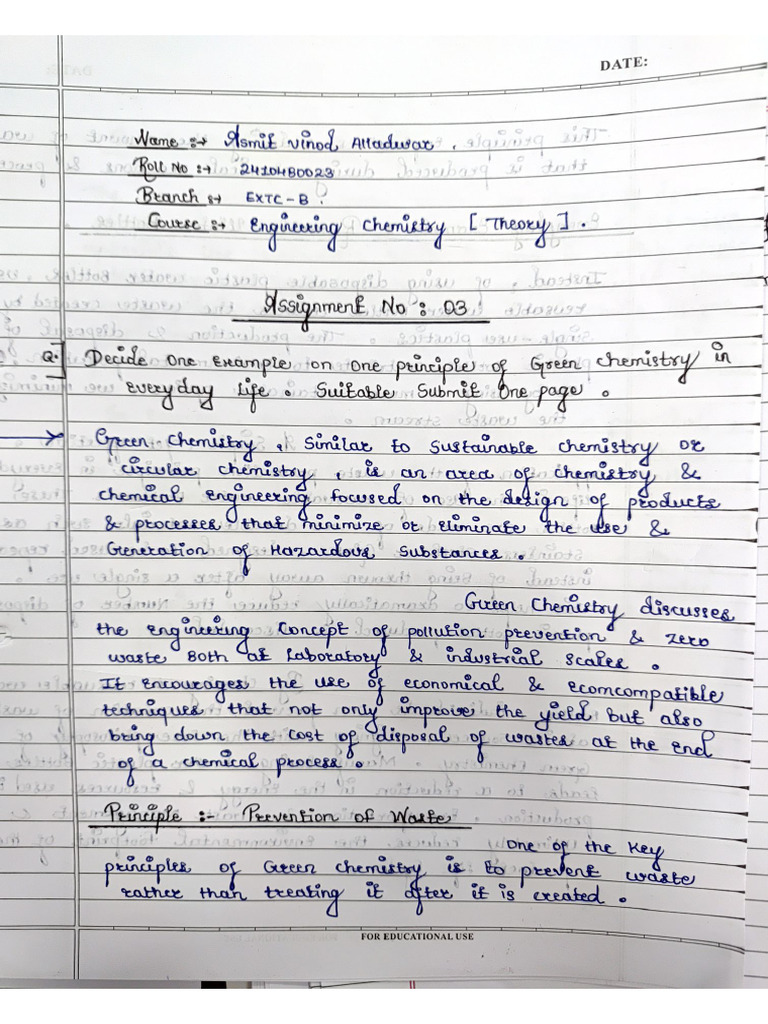 DATE:
Name :→ Asmit Vinod Alladwar .
Roll No :→ 2410480023
Branch :→ EXTC-B .
Course :→ Engineering Chemistry [ Theory ] .
Assignment No : 03
Q.] Decide one example on one principle of Green chemistry in
everyday Life . Suitable Submit One page .
→ Green chemistry , similar to sustainable chemistry or
circular chemistry , is an area of chemistry &
chemical engineering focused on the design of products
& processes that minimize or eliminate the use &
Generation of Hazardous Substances .
Green Chemistry discusses
the engineering concept of pollution prevention & zero
waste Both at Laboratory & industrial scales .
It encourages the use of economical & ecomcompatible
techniques that not only improve the yield but also
bring down the cost of disposal of wastes at the end
of a chemical process .
Principle :- Prevention of Waste
One of the Key
principles of Green chemistry is to prevent waste
rather than treating it after it is created .
FOR EDUCATIONAL USE